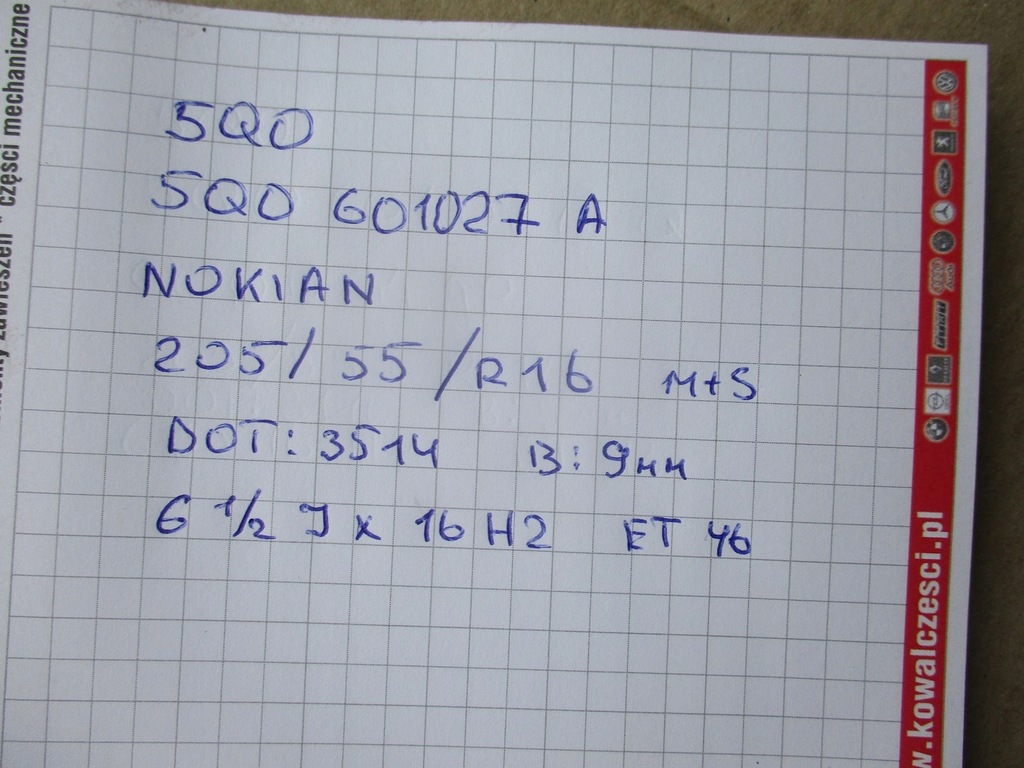 5Q0
5Q0 601027 A
NOKIAN
205/ 55 /R16 M+S
DOT: 3514 B: 9mm
6 1/2 J x 16 H2 ET 46
części mechaniczne
w.kowalczesci.pl